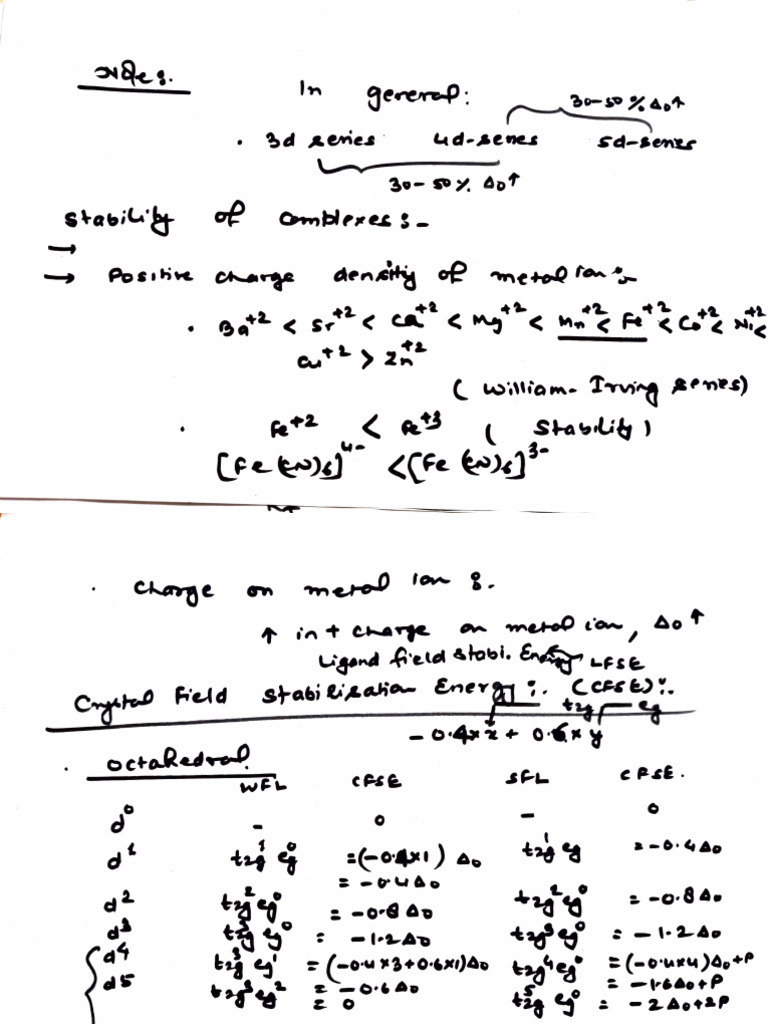 Notes.
In general:
30-50 % Δo↑
• 3d series 4d-series 5d-series
30-50 % Δo↑
Stability of complexes:-
→
→ Positive charge density of metal ion:-
• Ba+2 < Sr+2 < Ca+2 < Mg+2 < Mn+2 < Fe+2 < Co+2 < Ni+2 <
Cu+2 > Zn+2
(William-Irving series)
• Fe+2 < Fe+3 (Stability)
[Fe(CN)6]4- < [Fe(CN)6]3-
• Charge on metal ion :.
↑ in + charge on metal ion, Δo ↑
Ligand field stabi. Energy LFSE
Crystal Field Stabilisation Energy :. (CFSE):.
t2g eg
-0.4×x + 0.6×y
• Octahedral
WFL CFSE SFL CFSE.
d0 - 0 - 0
d1 t2g1 eg0 =(-0.4×1) Δo t2g1 eg = -0.4Δo
= -0.4Δo
d2 t2g2eg0 = -0.8Δo t2g2eg0 = -0.8Δo
d3 t2g3eg0 = -1.2Δo t2g3eg0 = -1.2Δo
d4 t2g3eg1 =(-0.4×3+0.6×1)Δo t2g4eg0 =(-0.4×4)Δo+P
= -0.6Δo = -1.6Δo+P
d5 t2g3eg2 = 0 t2g5 eg0 = -2Δo+2P